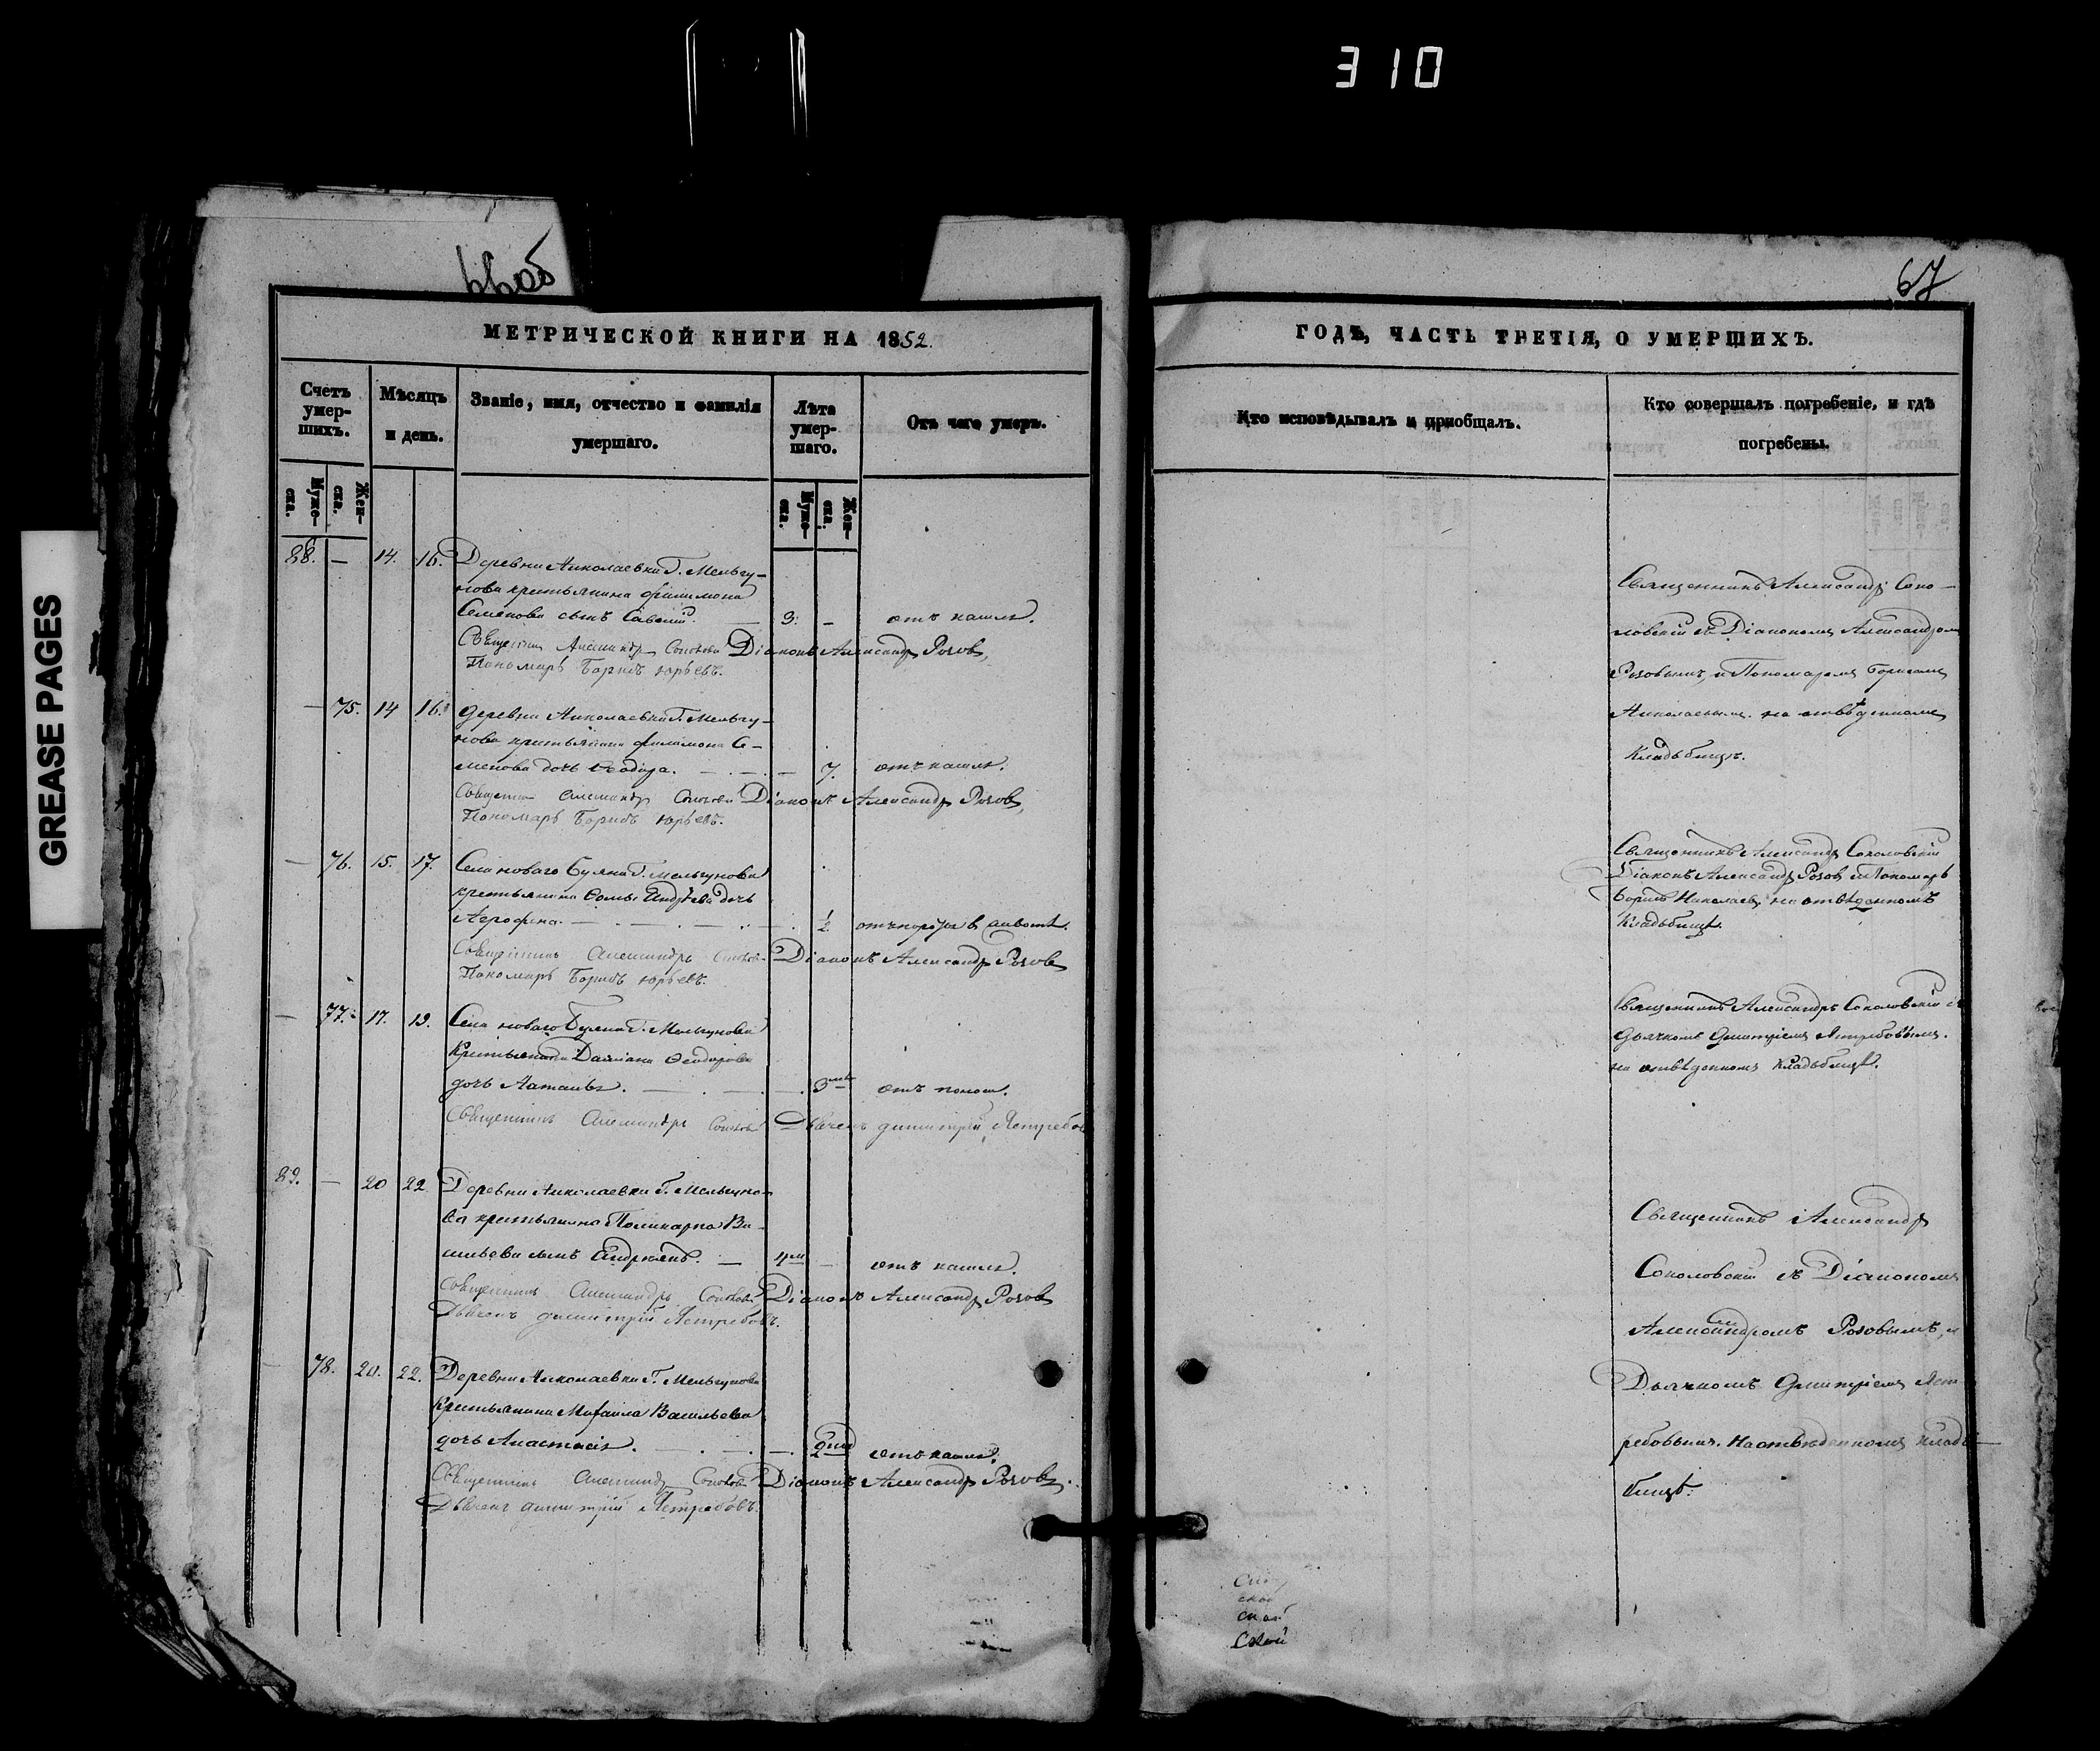 310
66об
67
GREASE PAGES
МЕТРИЧЕСКОЙ КНИГИ НА 1852.
ГОДЪ, ЧАСТЬ ТРЕТІЯ, О УМЕРШИХЪ.
Счетъ умер-
шихъ.
Мѣсяцъ
и день.
Званіе, имя, отчество и фамилія
умершаго.
Лѣта
умер-
шаго.
Отъ чего умеръ.
Кто исповѣдывалъ и пріобщалъ.
Кто совершалъ погребеніе, и гдѣ
погребены.
Муже-
ска.
Жен-
ска.
Муже-
ска.
Жен-
ска.
88. — 14. 16. Деревни Николаевки Г. Мельгу-
нова крестьянина Филимона
Семенова сынъ Савелій. — 3. — отъ кашля.
Священникъ Александръ Соколовскій Діаконъ Александръ Розовъ,
Пономарь Борисъ Юрьевъ.
Священникъ Александръ Соко-
ловскій съ Діакономъ Александромъ
Розовымъ, и Пономаремъ Борисомъ
Николаевымъ. на отведенномъ
Кладбищѣ.
— 75. 14 16. деревни Николаевки Г. Мельгу-
нова крестьянина Филимона Се-
менова дочь Ѳеодора. — 7. отъ кашля.
Священникъ Александръ Соколовскій Діаконъ Александръ Розовъ,
Пономарь Борисъ Юрьевъ.
— 76. 15. 17. Села новаго Буяна Г. Мельгунова
крестьянина Ѳомы Андреева дочь
Агрофена. — ½ отъ порѣзы в животѣ.
Священникъ Александръ Діаконъ Александръ Розовъ
Пономарь Борисъ Юрьевъ.
Священникъ Александръ Соколовскій
Діаконъ Александръ Розовъ и Пономарь
Борисъ Николаевъ на отведенномъ
Кладбищѣ.
— 77. 17. 19. Села новаго Буяна Г. Мельгунова
Крестьянина Даміана Ѳеодорова
дочь Наталья. — 3 отъ поноса.
Священникъ Александръ Дьячекъ Димитрій Ястребовъ
Священникъ Александръ Соколовскій съ
дьячкомъ Дмитріемъ Ястребовымъ.
на отведенномъ Кладбищѣ.
89. — 20 22 Деревни Николаевки Г. Мельгуно-
ва крестьянина Поликарпа Ва-
сильева сынъ Андреянъ. — 4 — отъ кашля.
Священникъ Александръ Соколовскій Діаконъ Александръ Розовъ
Дьячекъ Димитрій Ястребовъ.
Священникъ Александръ
Соколовскій съ Діакономъ
Александромъ Розовымъ, и
Дьячкомъ Дмитріемъ Яст-
ребовымъ. На отведенномъ клад-
бищѣ.
78. 20. 22. Деревни Николаевки Г. Мельгунова
Крестьянина Михаила Васильева
дочь Анастасія. — отъ кашля.
Священникъ Александръ Соколовскій Діаконъ Александръ Розовъ.
Дьячекъ Димитрій Ястребовъ.
ской
ской
Ской